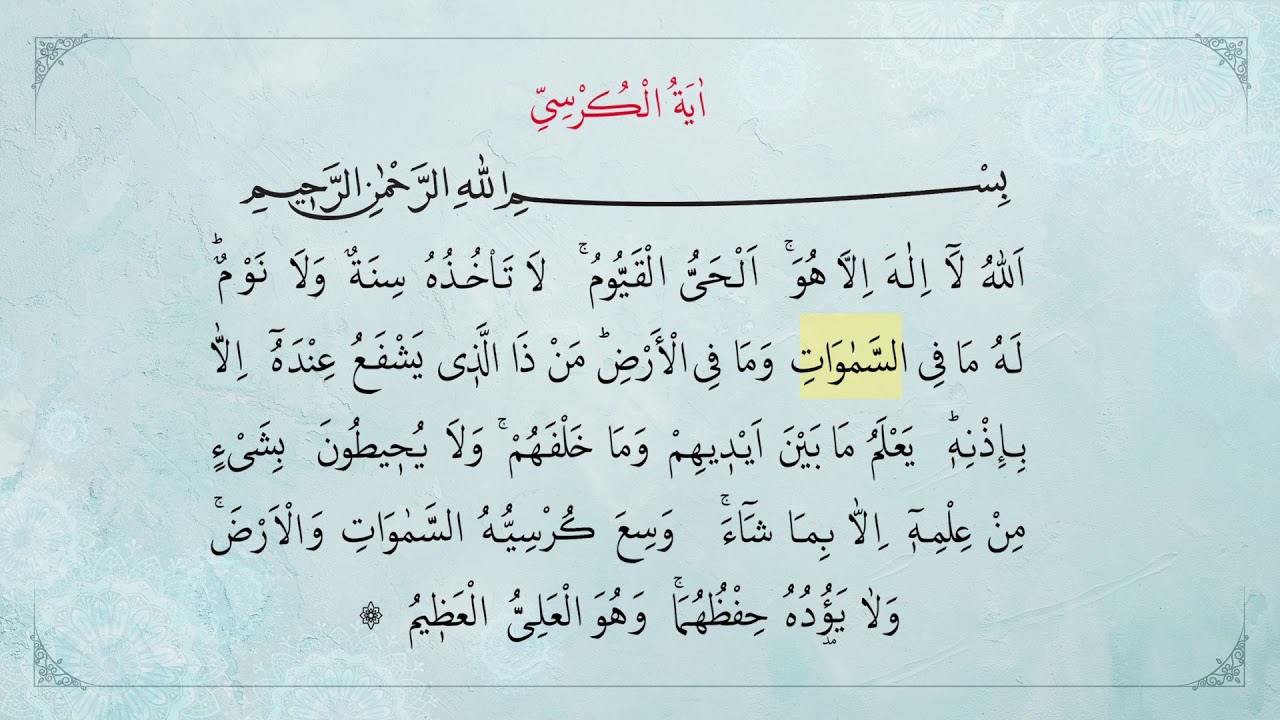 اٰيَةُ الْكُرْسِيِّ
بِسْمِ اللّٰهِ الرَّحْمٰنِ الرَّح۪يمِ
اَللّٰهُ لَٓا اِلٰهَ اِلَّا هُوَۚ اَلْحَىُّ الْقَيُّومُۚ لَا تَأْخُذُهُ سِنَةٌ وَلَا نَوْمٌؕ
لَهُ مَا فِى السَّمٰوَاتِ وَمَا فِى الْأَرْضِؕ مَنْ ذَا الَّذ۪ى يَشْفَعُ عِنْدَهُٓ اِلَّا
بِإِذْنِه۪ؕ يَعْلَمُ مَا بَيْنَ اَيْد۪يهِمْ وَمَا خَلْفَهُمْۚ وَلَا يُح۪يطُونَ بِشَىْءٍ
مِنْ عِلْمِه۪ٓ اِلَّا بِمَا شَٓاءَۚ وَسِعَ كُرْسِيُّهُ السَّمٰوَاتِ وَالْاَرْضَۚ
وَلَا يَؤُ۫دُهُ حِفْظُهُمَاۚ وَهُوَ الْعَلِىُّ الْعَظ۪يمُ